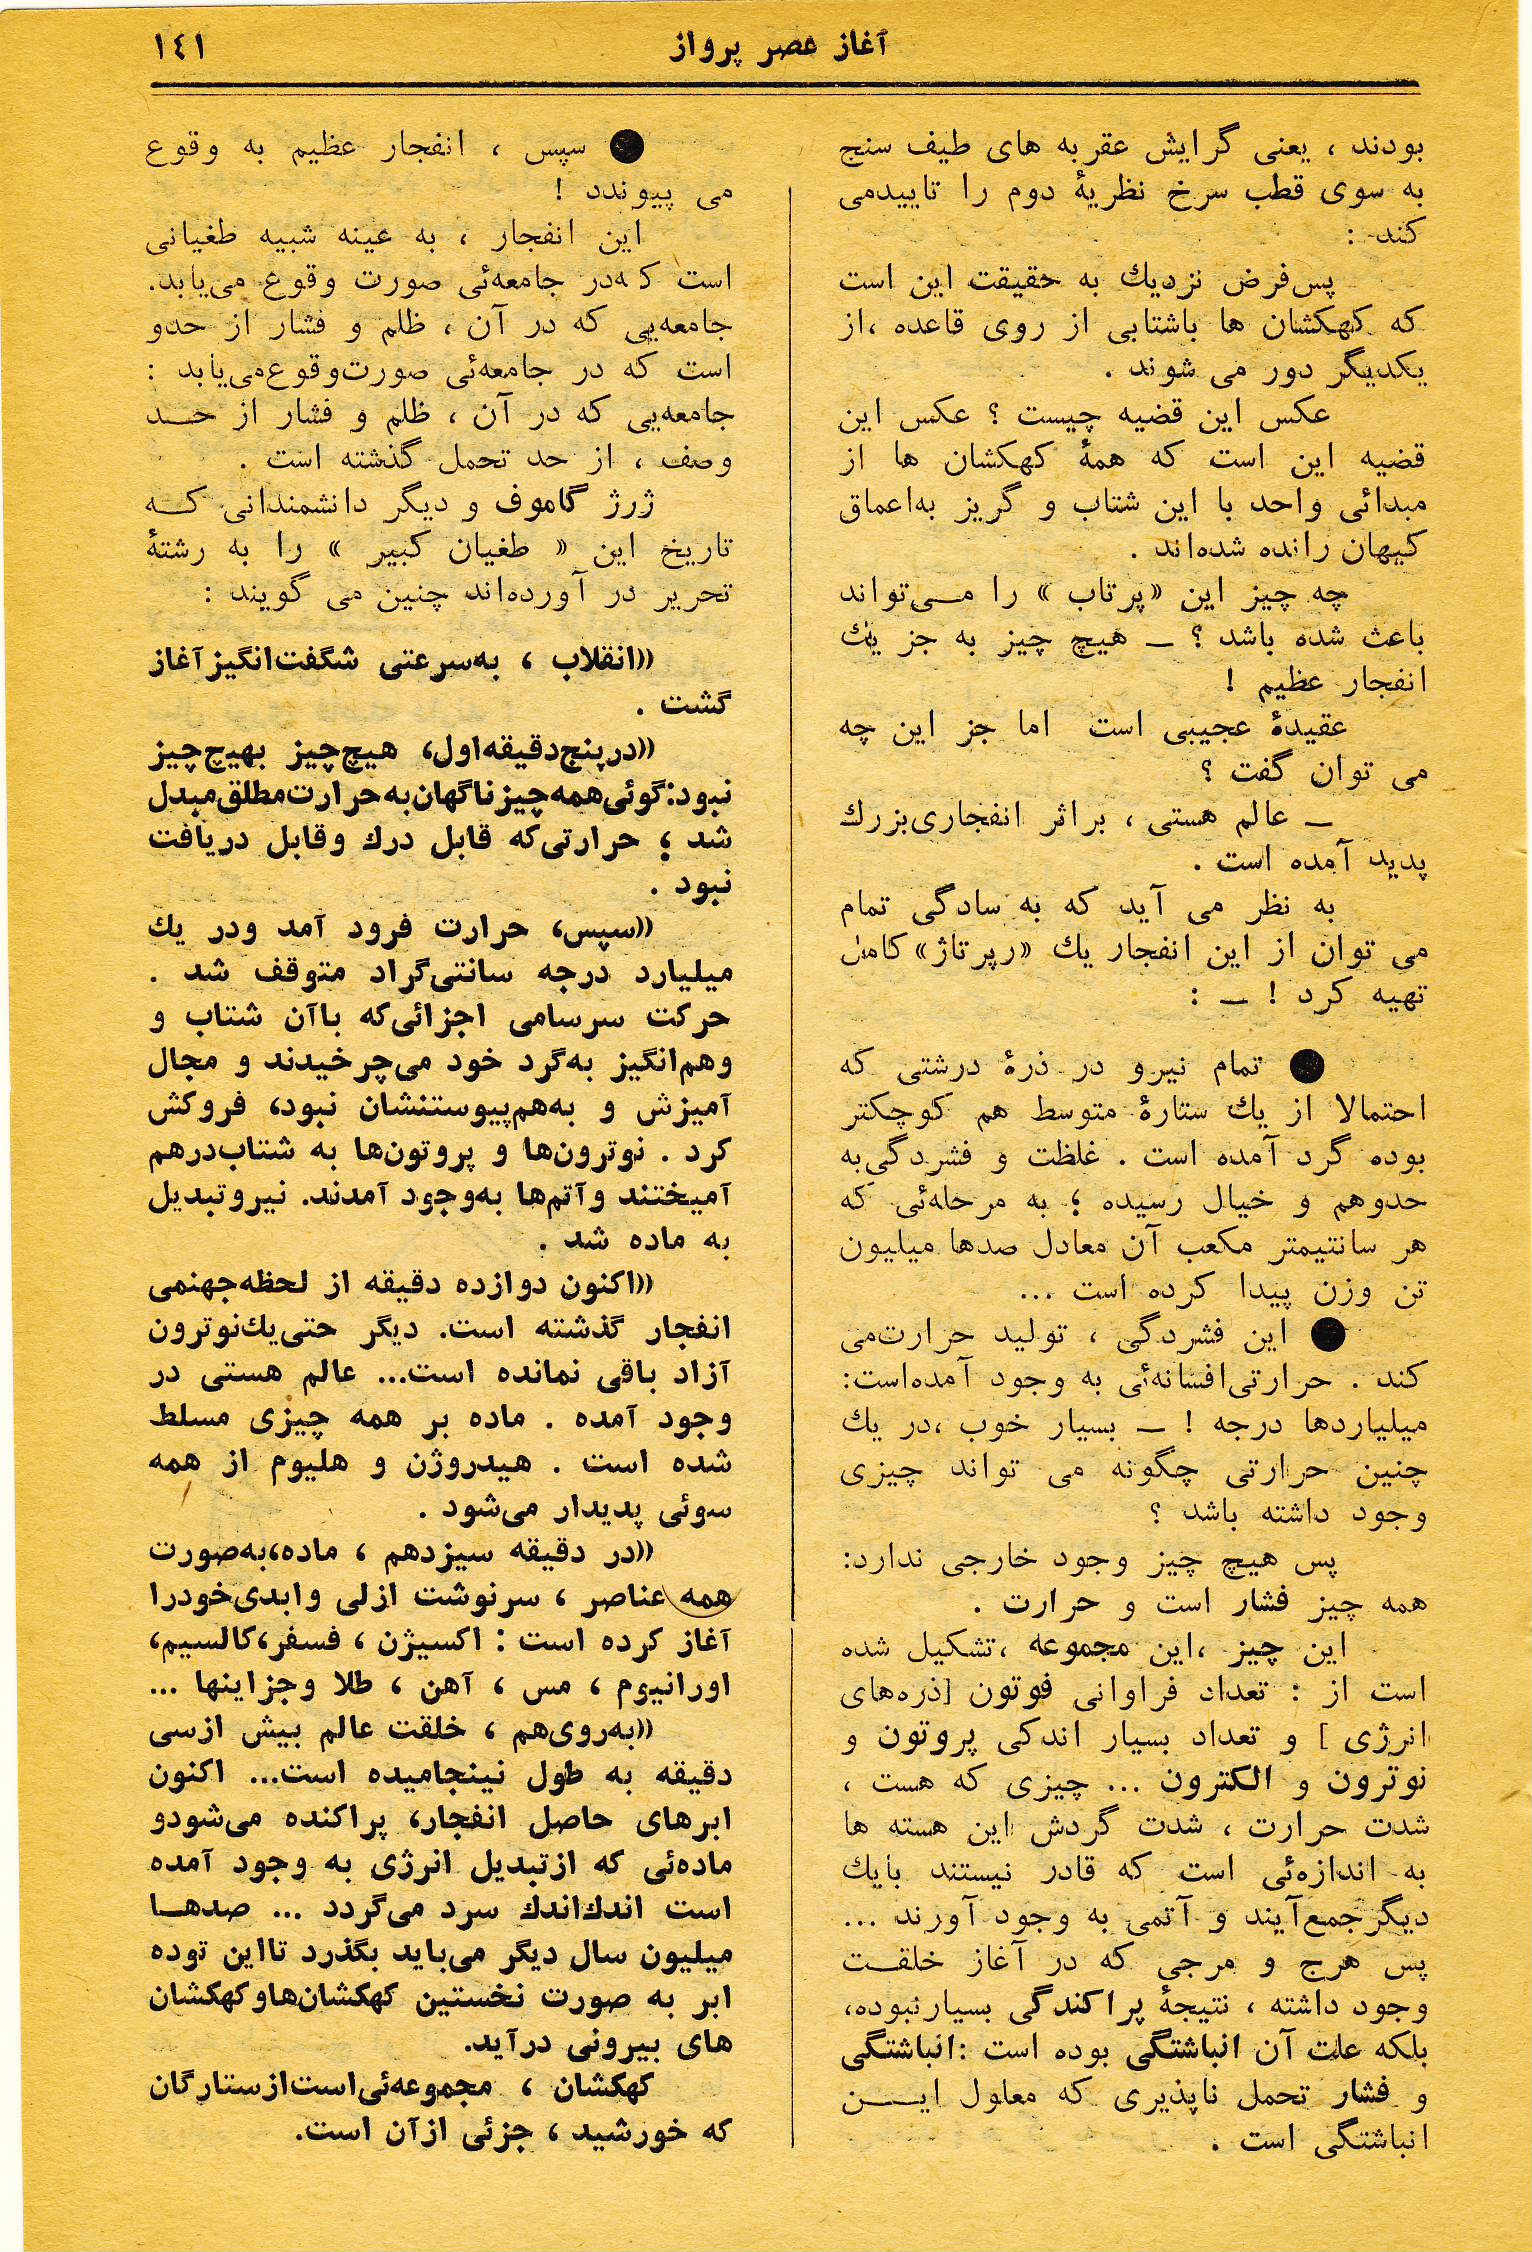 آغاز عصر پرواز
۱٤۱
بودند ، یعنی گرایش عقربه های طیف سنج
به سوی قطب سرخ نظریهٔ دوم را تاییدمی
کند :
پس‌فرض نزدیك به حقیقت این است
که کهکشان ها باشتابی از روی قاعده ،از
یکدیگر دور می شوند .
عکس این قضیه چیست ؟ عکس این
قضیه این است که همهٔ کهکشان ها از
مبدائی واحد با این شتاب و گریز به‌اعماق
کیهان رانده شده‌اند .
چه چیز این «پرتاب » را مـی‌تواند
باعث شده باشد ؟ ـ هیچ چیز به جز یك
انفجار عظیم !
عقیدهٔ عجیبی است اما جز این چه
می توان گفت ؟
ـ عالم هستی ، براثر انفجاری‌بزرك
پدید آمده است .
به نظر می آید که به سادگی تمام
می توان از این انفجار یك «رپرتاژ» کامل
تهیه کرد ! ـ :
● تمام نیرو در ذرهٔ درشتی که
احتمالا از یك ستارهٔ متوسط هم کوچکتر
بوده گرد آمده است . غلظت و فشردگی‌به
حدوهم و خیال رسیده ؛ به مرحله‌ئی که
هر سانتیمتر مکعب آن معادل صدها میلیون
تن وزن پیدا کرده است ...
● این فشردگی ، تولید حرارت‌می
کند . حرارتی‌افسانه‌ئی به وجود آمده‌است:
میلیاردها درجه ! ـ بسیار خوب ،در یك
چنین حرارتی چگونه می تواند چیزی
وجود داشته باشد ؟
پس هیچ چیز وجود خارجی ندارد:
همه چیز فشار است و حرارت .
این چیز ،این مجموعه ،تشکیل شده
است از : تعداد فراوانی فوتون [ذره‌های
انرژی ] و تعداد بسیار اندکی پروتون و
نوترون و الکترون ... چیزی که هست ،
شدت حرارت ، شدت گردش این هسته ها
به اندازه‌ئی است که قادر نیستند بایك
دیگرجمع‌آیند و آتمی به وجود آورند ...
پس هرج و مرجی که در آغاز خلقـت
وجود داشته ، نتیجهٔ پراکندگی بسیارنبوده،
بلکه علت آن انباشتگی بوده است :انباشتگی
و فشار تحمل ناپذیری که معلول ایـن
انباشتگی است .
● سپس ، انفجار عظیم به وقوع
می پیوندد !
این انفجار ، به عینه شبیه طغیانی
است که‌در جامعه‌ئی صورت وقوع می‌یابد.
جامعه‌یی که در آن ، ظلم و فشار از حدو
است که در جامعه‌ئی صورت‌وقوع‌می‌یابد :
جامعه‌یی که در آن ، ظلم و فشار از حـد
وصف ، از حد تحمل گذشته است .
ژرژ گاموف و دیگر دانشمندانی کـه
تاریخ این « طغیان کبیر » را به رشتهٔ
تحریر در آورده‌اند چنین می گویند :
«انقلاب ، به‌سرعتی شگفت‌انگیزآغاز
گشت .
«درپنج‌دقیقه‌اول، هیچ‌چیز بهیچ‌چیز
نبود:گوئی‌همه‌چیزناگهان‌به‌حرارت‌مطلق‌مبدل
شد ؛ حرارتی‌که قابل درك وقابل دریافت
نبود .
«سپس، حرارت فرود آمد ودر یك
میلیارد درجه سانتی‌گراد متوقف شد .
حرکت سرسامی اجزائی‌که باآن شتاب و
وهم‌انگیز به‌گرد خود می‌چرخیدند و مجال
آمیزش و به‌هم‌پیوستنشان نبود، فروکش
کرد . نوترون‌ها و پروتون‌ها به شتاب‌درهم
آمیختند وآتم‌ها به‌وجود آمدند. نیروتبدیل
به ماده شد .
«اکنون دوازده دقیقه از لحظه‌جهنمی
انفجار گذشته است. دیگر حتی‌یك‌نوترون
آزاد باقی نمانده است... عالم هستی در
وجود آمده . ماده بر همه چیزی مسلط
شده است . هیدروژن و هلیوم از همه
سوئی پدیدار می‌شود .
«در دقیقه سیزدهم ، ماده،به‌صورت
همه عناصر ، سرنوشت ازلی وابدی‌خودرا
آغاز کرده است : اکسیژن ، فسفر،کالسیم،
اورانیوم ، مس ، آهن ، طلا وجزاینها ...
«به‌روی‌هم ، خلقت عالم بیش ازسی
دقیقه به طول نینجامیده است... اکنون
ابرهای حاصل انفجار، پراکنده می‌شودو
ماده‌ئی که ازتبدیل انرژی به وجود آمده
است اندك‌اندك سرد می‌گردد ... صدهـا
میلیون سال دیگر می‌باید بگذرد تااین توده
ابر به صورت نخستین کهکشان‌هاوکهکشان
های بیرونی درآید.
کهکشان ، مجموعه‌ئی‌است‌ازستارگان
که خورشید ، جزئی ازآن است.